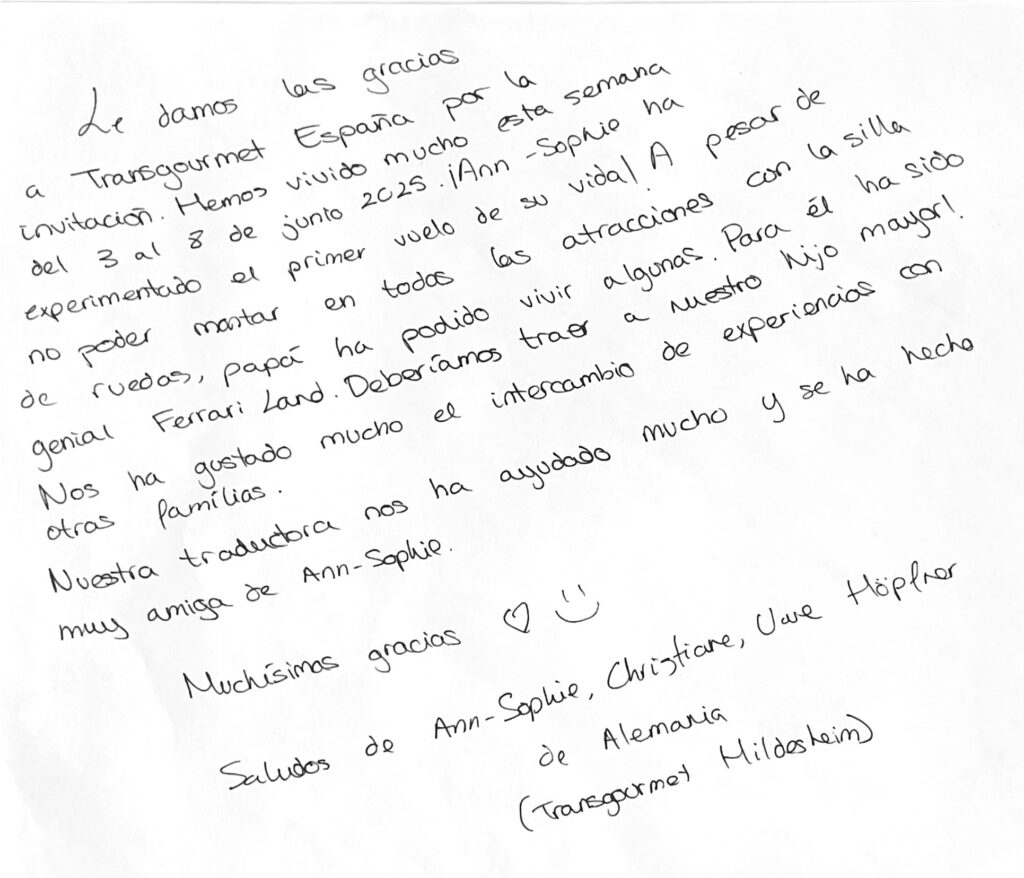 Le damos las gracias
a Transgourmet España por la
invitación. Hemos vivido mucho esta semana
del 3 al 8 de junio 2025. ¡Ann-Sophie ha
experimentado el primer vuelo de su vida! A pesar de
no poder montar en todas las atracciones con la silla
de ruedas, papá ha podido vivir algunas. Para él ha sido
genial Ferrari Land. Deberíamos traer a nuestro hijo mayor!.
Nos ha gustado mucho el intercambio de experiencias con
otras familias.
Nuestra traductora nos ha ayudado mucho y se ha hecho
muy amiga de Ann-Sophie.
Muchísimas gracias ♡ :)
Saludos de Ann-Sophie, Christiane, Uwe Höpfner
de Alemania
(Transgourmet Hildesheim)